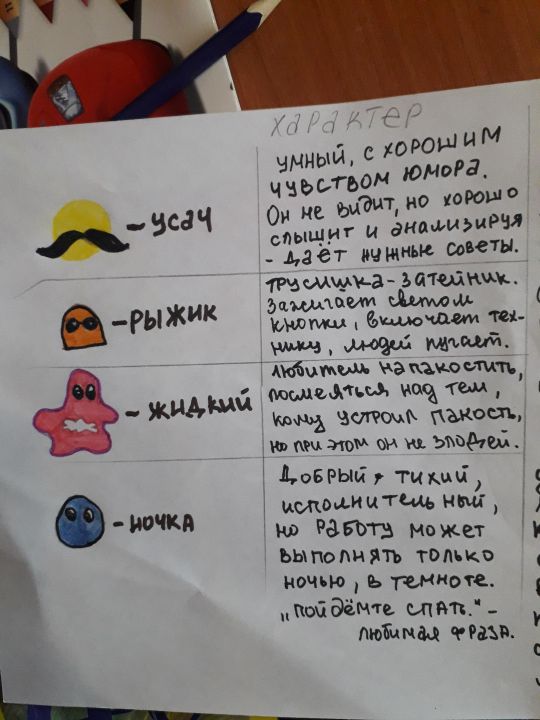 Характер
- Усач
Умный, с хорошим
чувством юмора.
Он не видит, но хорошо
слышит и анализируя
- даёт нужные советы.
- Рыжик
Трусишка-затейник.
Зажигает светом
кнопки, включает тех-
нику, людей пугает.
- Жидкий
Любитель напакостить,
посмеяться над тем,
кому устроил пакость,
но при этом он не злодей.
- Ночка
Добрый, тихий,
исполнительный,
но работу может
выполнять только
ночью, в темноте.
„Пойдёмте спать." -
любимая фраза.